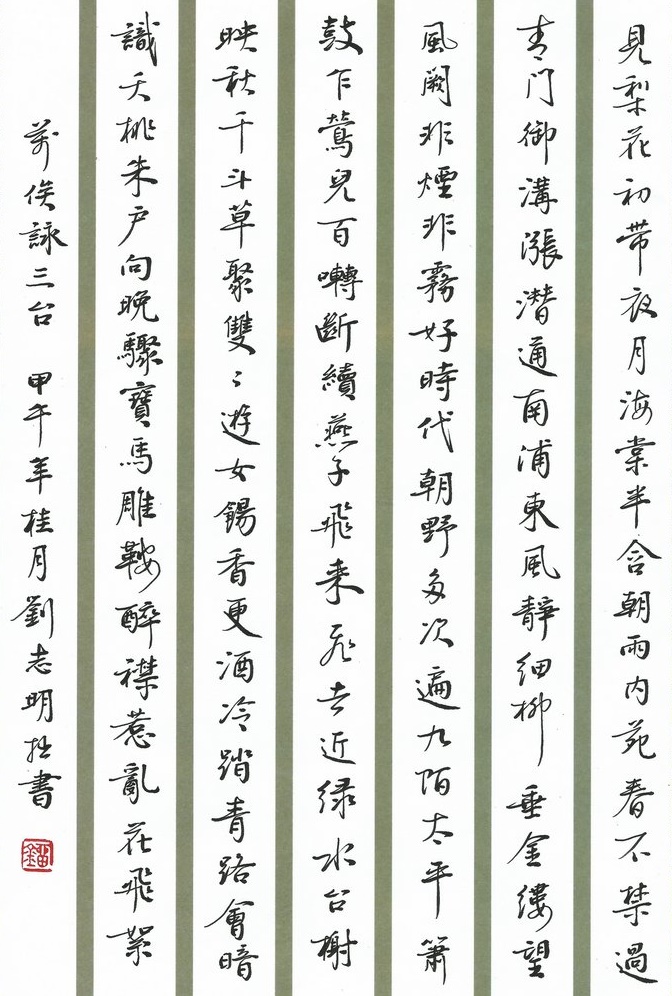 見梨花初帶夜月海棠半含朝雨内苑春不禁過
青门御溝漲潜通南浦東風靜細柳垂金縷望
風闕非煙非霧好時代朝野多欢遍九陌太平簫
鼓乍鶯兒百囀斷續燕子飛来飛去近緑水台榭
映秋千斗草聚雙々遊女餳香更酒冷踏青路會暗
識夭桃朱户向晚驟寶馬雕鞍醉襟惹亂花飛絮
萬俟詠三台 甲午年桂月劉志明拙書